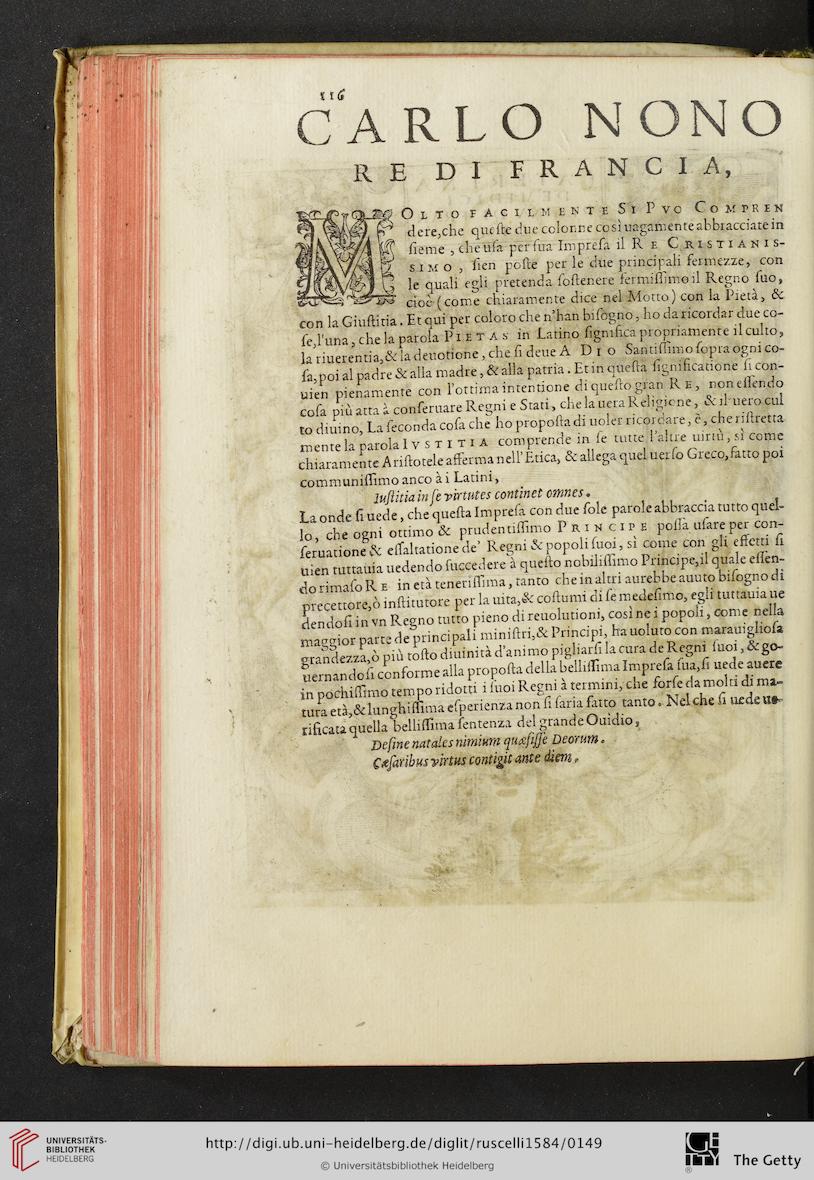 116
CARLO NONO
RE DI FRANCIA,
MOLTO FACILMENTE SI PVO COMPREN
dere,che queſte due colonne così uagamente abbracciate in
ſieme , che uſa per ſua Impreſa il RE CRISTIANIS-
SIMO , ſien poſte per le due principali fermezze, con
le quali egli pretenda ſoſtenere fermiſſimo il Regno ſuo,
cioè (come chiaramente dice nel Motto) con la Pietà, &
con la Giuſtitia. Et qui per coloro che n'han biſogno, ho da ricordar due co-
ſe,l'una, che la parola PIETAS in Latino ſignifica propriamente il culto,
la riuerentia,& la deuotione, che ſi deue A DIO Santiſſimo ſopra ogni co-
ſa, poi al padre & alla madre, & alla patria. Et in queſta ſignificatione ſi con-
uien pienamente con l'ottima intentione di queſto gran RE, non eſſendo
coſa più atta à conſeruare Regni e Stati, che la uera Religione, & il uero cul
to diuino, La ſeconda coſa che ho propoſta di uoler ricordare, è, che riſtretta
mente la parola IVSTITIA comprende in ſe tutte l'altre uirtù, sì come
chiaramente Ariſtotele afferma nell'Etica, & allega quel uerſo Greco, fatto poi
communiſſimo anco à i Latini,
Iuſtitia in ſe virtutes continet omnes.
La onde ſi uede, che queſta Impreſa con due ſole parole abbraccia tutto quel-
lo, che ogni ottimo & prudentiſſimo PRINCIPE poſſa uſare per con-
ſeruatione & eſſaltatione de' Regni & popoli ſuoi, sì come con gli effetti ſi
uien tuttauia uedendo ſuccedere à queſto nobiliſſimo Principe,il quale eſſen-
do rimaſo RE in età teneriſſima, tanto che in altri aurebbe auuto biſogno di
precettore,ò inſtitutore per la uita,& coſtumi di ſe medeſimo, egli tuttauia ue
dendoſi in vn Regno tutto pieno di reuolutioni, così ne i popoli, come nella
maggior parte de principali miniſtri,& Principi, ha uoluto con marauiglioſa
grandezza,ò più toſto diuinità d'animo pigliarſi la cura de Regni ſuoi, & go-
uernandoſi conforme alla propoſta della belliſſima Impreſa ſua,ſi uede auere
in pochiſſimo tempo ridotti i ſuoi Regni à termini, che forſe da molti di ma-
tura età,& lunghiſſima eſperienza non ſi ſaria fatto tanto. Nel che ſi uede ue-
rificata quella belliſſima ſentenza del grande Ouidio,
Deſine natales nimium quæſiſſe Deorum.
Cæſaribus virtus contigit ante diem.
UNIVERSITÄTS-
BIBLIOTHEK
HEIDELBERG
http://digi.ub.uni-heidelberg.de/diglit/ruscelli1584/0149
© Universitätsbibliothek Heidelberg
GETTY
®
The Getty